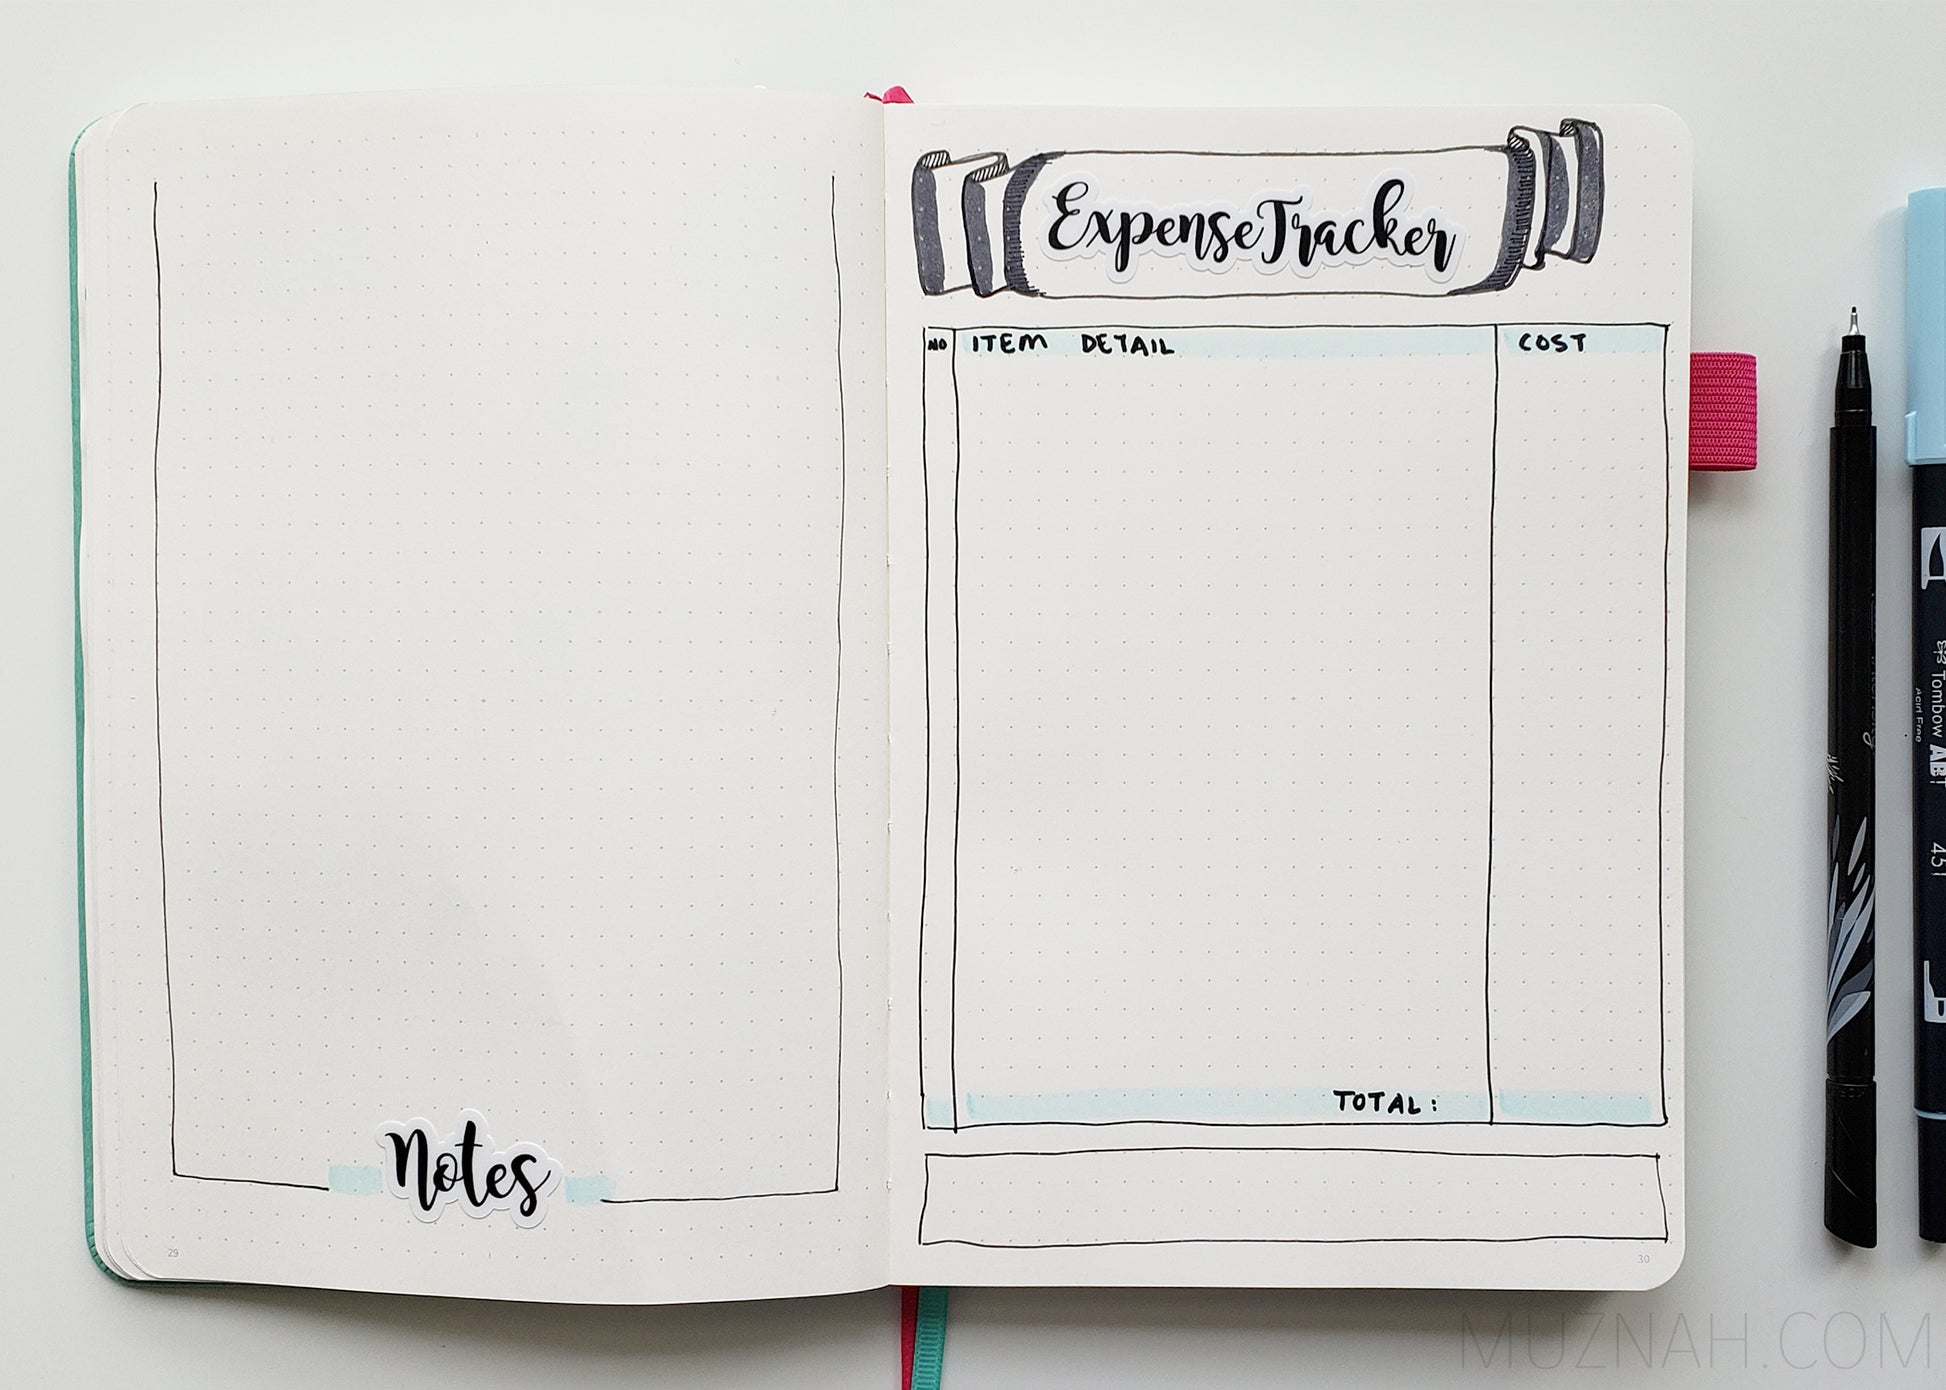 Notes
29
Expense Tracker
NO ITEM DETAIL COST
TOTAL:
30
Tombow ABT
Acid Free
451
MUZNAH.COM